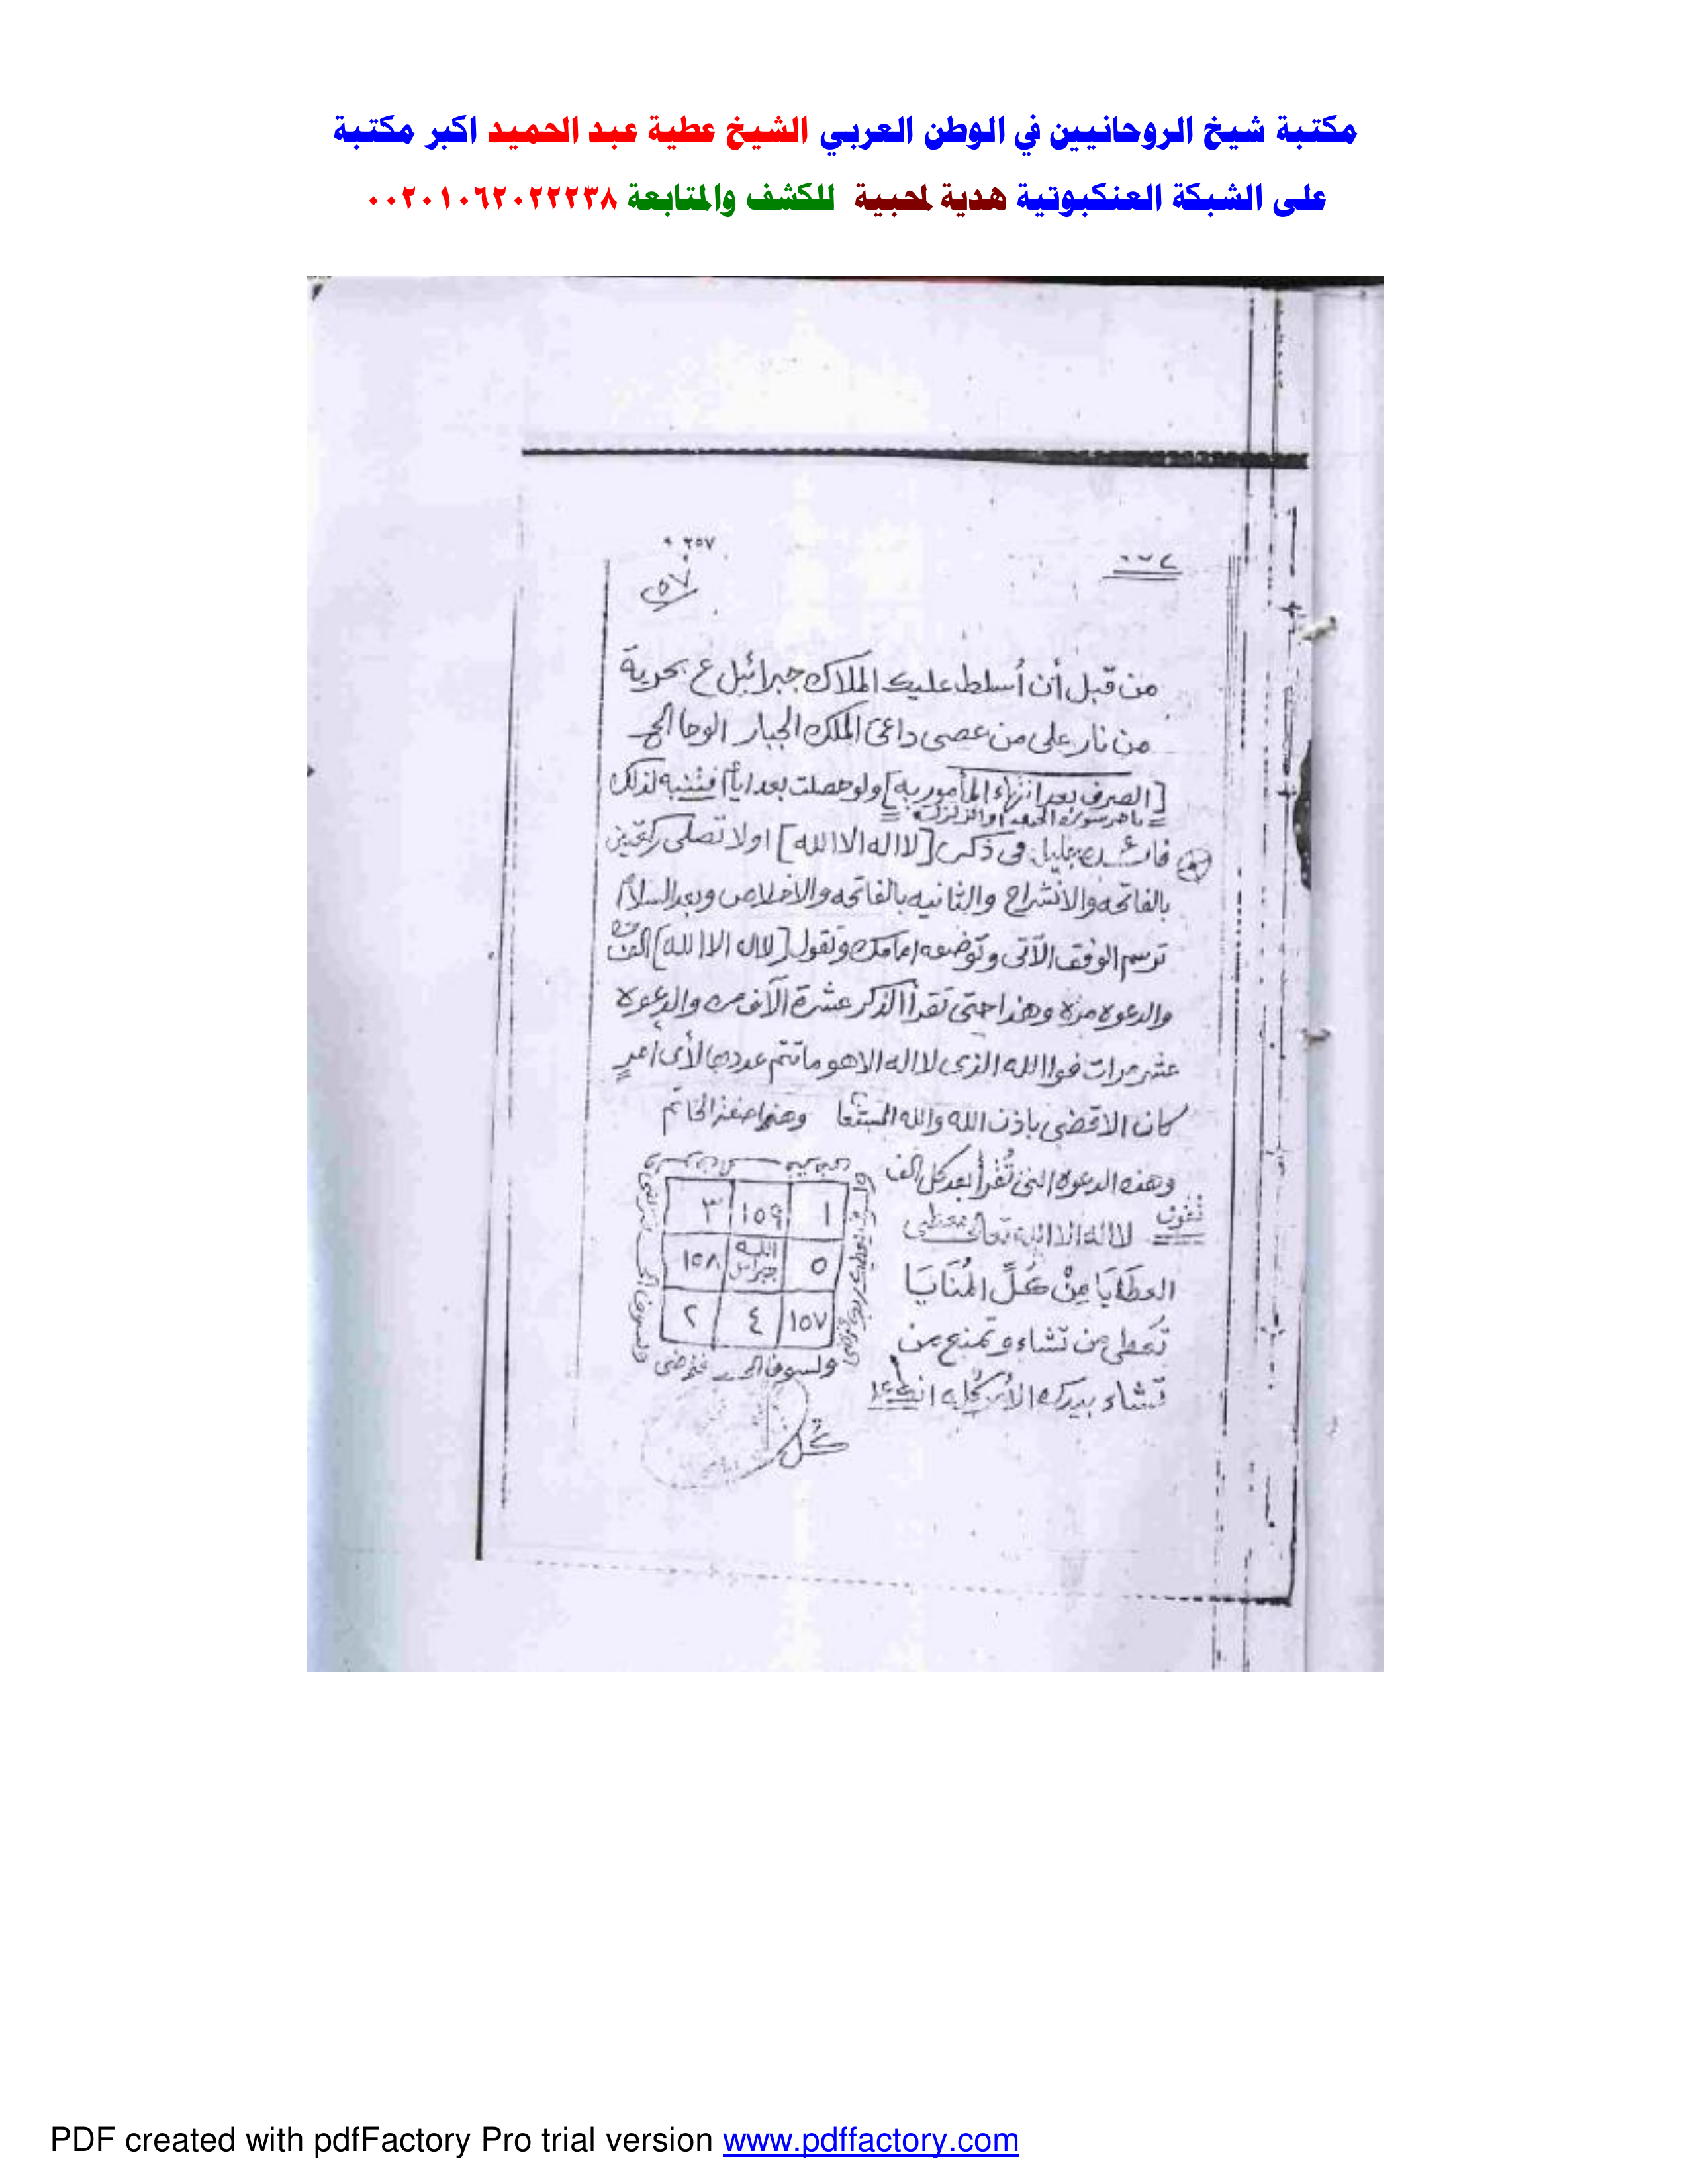 مكتبة شيخ الروحانيين في الوطن العربي الشيخ عطية عبد الحميد اكبر مكتبة
على الشبكة العنكبوتية هدية لمحبية للكشف والمتابعة ٠٠٢٠١٠٦٢٠٢٢٢٣٨
٢٥٧
٢٥٧
من قبل أن أسلط عليك الملاك جبرائيل ع بحربة
من نار على من عصى داعى الملك الجبار الوحا
[الصرف بعد انتهاء المأموريه] ولو حصلت بعد أيام فتنبه لذلك
جليل فى ذكر [لا اله الا الله] اولا تصلى ركعتين
بالفاتحه والانشراح والثانيه بالفاتحه والاخلاص وبعد السلام
ترسم الوفق الآتى وتوضعه امامك وتقول [لااله الا الله] الف
والدعوه مره وهذا حتى تقرأ الذكر عشرة آلاف مره والدعوه
عشر مرات فوالله الذى لا اله الا هو ماتتم عددها لأى أمر
كان الا قضى باذن الله والله المستعان وهذا صفة الخاتم
وهذه الدعوه التى تُقرأ بعد كل الف
تقول لا اله الا الله
العطايا مِنْ كُلِّ
تعطى من تشاء وتمنع من
تشاء بيدك الأمر كله
٣ ١٥٩ ١
١٥٨ الله جبرائيل ٥
٢ ٤ ١٥٧
ولسوف
PDF created with pdfFactory Pro trial version www.pdffactory.com